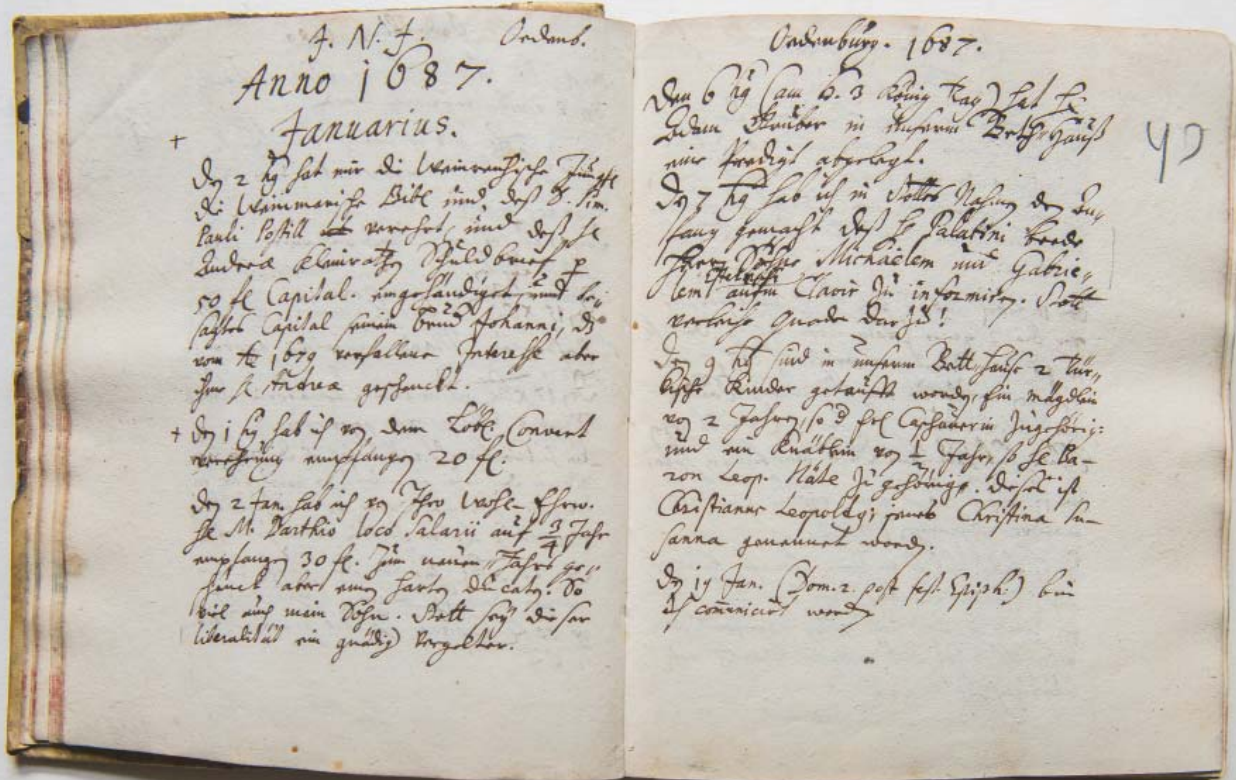 J. N. J. Oedenb.
Anno 1687.
Januarius.
+
Den 2 hg hat mir die Weinrenchische Jungfr
die Weinmarische Bibl und deß D. Sim.
Pauli Postill verehrt, und deß H
Andreæ Schuldbrief p
50 fl Capital. eingehändiget, und be„
sagtes Capital seinem Johanni, die
vom 1679 verfallene Interesse aber
ihm H Andreæ geschenckt.
+ Den 1 hg hab ich von dem Löbl. Convent
Verehrung empfangen 20 fl.
Den 2 Jan. hab ich von Ihro Wohl-Ehrw.
He M. Barthio loco Salarii auf 3/4 Jahr
empfangen 30 fl. Zum neuen Jahr ge„
schenck aber einen harten ducaten. So
viel auch mein Sohn. Gott sey dieser
liberalität ein gnädiger Vergelter.
Oedenburg. 1687.
Den 6 hg (am H. 3 König Tag) hat H
Adam Gruber in unserm Beth-Hauß
eine Predigt abgelegt.
40
Den 7 hg hab ich in Gottes Nahmen den An„
fang gemacht deß H Palatini beede
Herrn Söhne Michaelem und Gabrie„
lem aufm Clavir zu informiren. Gott
verleihe Gnade darzu!
Den 9 hg sind in unserm Betthause 2 Tür„
kische Kinder getaufft worden, Ein mägdlein
von 2 Jahren, so d zugehörig:
und ein Knäblein von Jahr, so He Ba-
ron Leop. Näte zugehörig. dieses ist
Christianus Leopoldus; jenes Christina Su-
sanna genennet worden.
Den 19 Jan. (Dom. 2. post fest. Epiph:) bin
ich communicirt worden